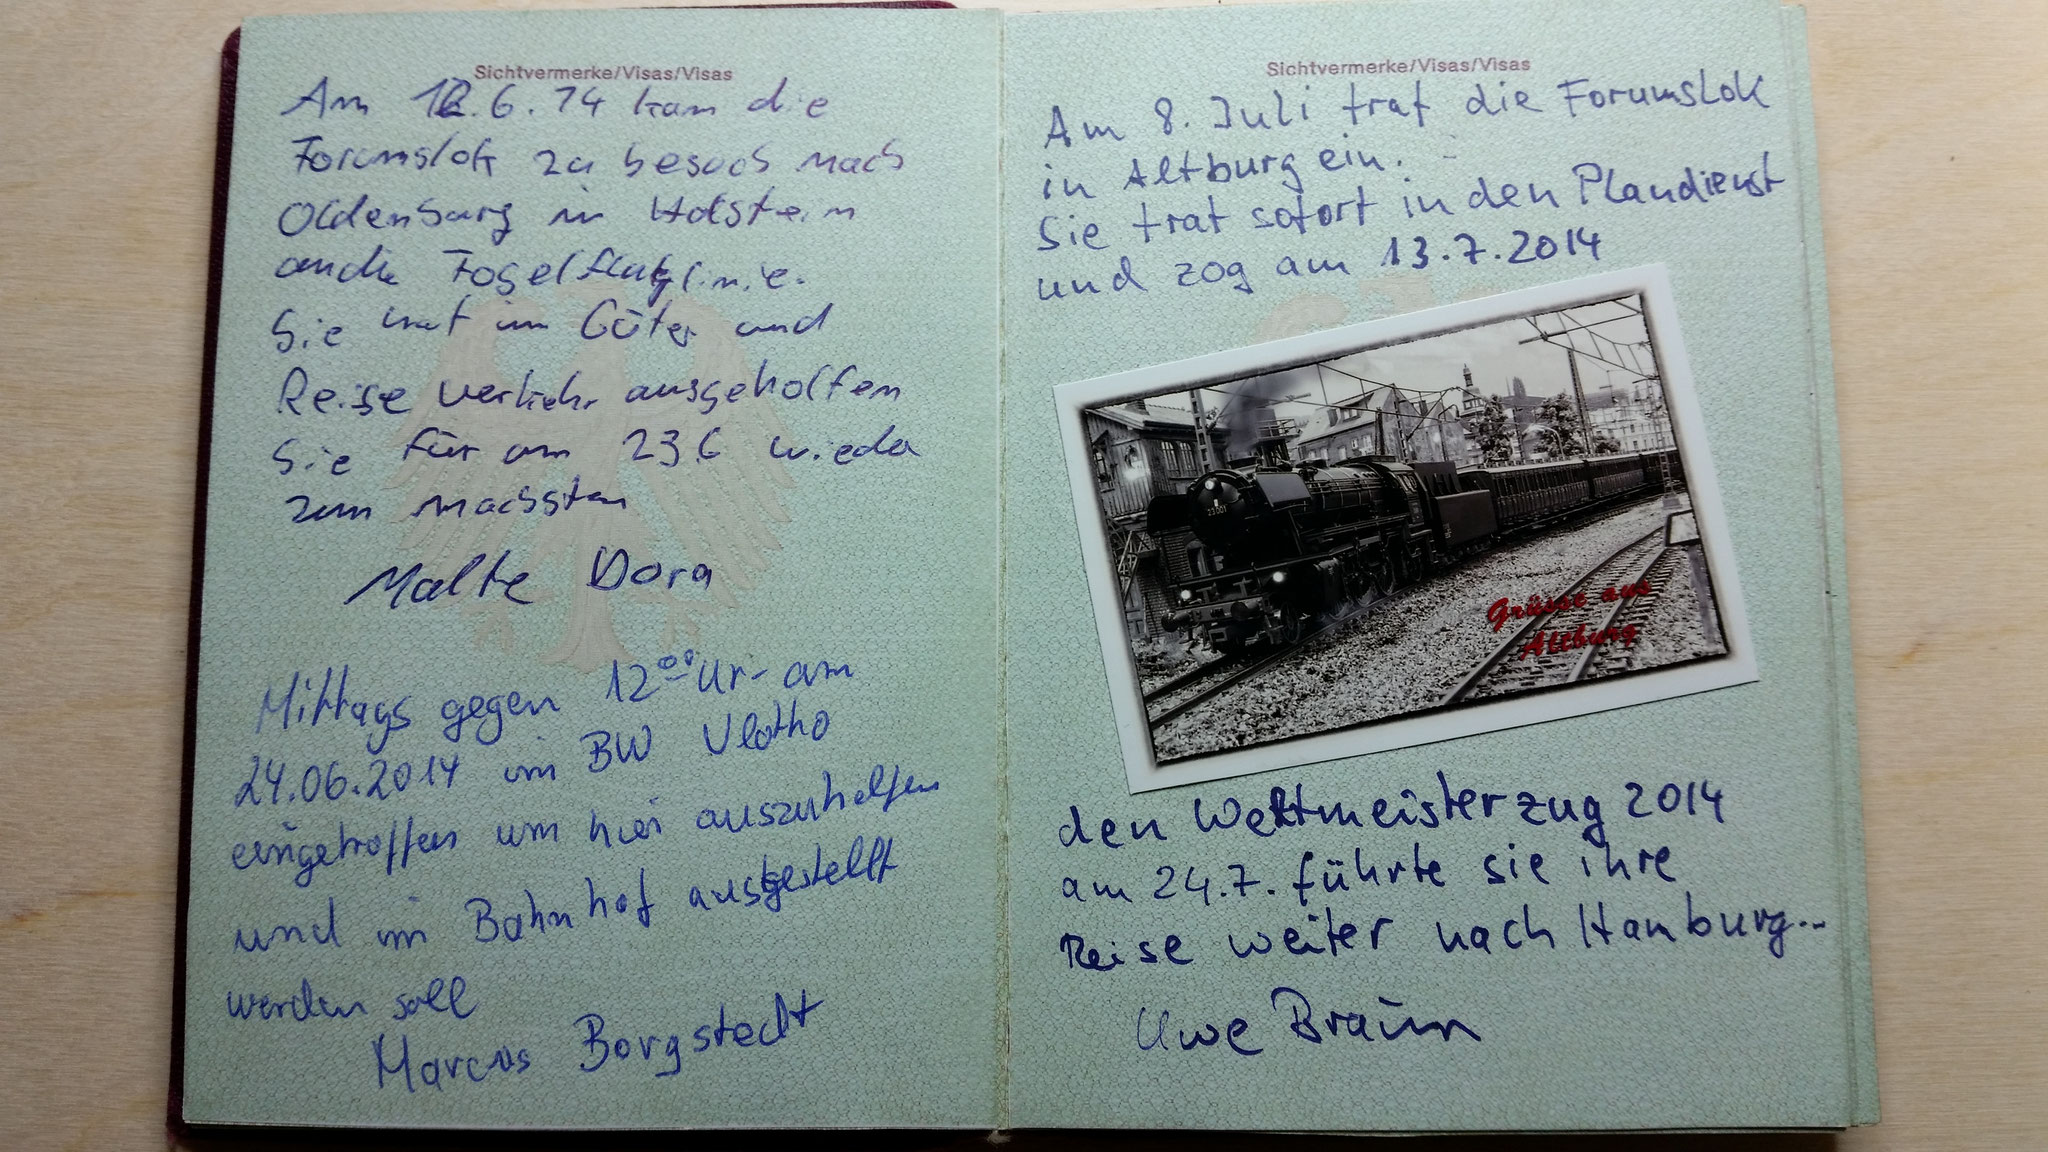 Sichtvermerke/Visas/Visas
Am 12.6.14 kam die
Forumslok zu besuch nach
Oldenburg in Holstein
an die Fogelfluglinie.
Sie hat im Güter und
Reise verkehr ausgeholfen
Sie für am 23.6 wieder
zum nachsten
Malte Dora
Mittags gegen 12⁰⁰ Ur- am
24.06.2014 im BW Vlotho
eingetroffen um hier auszuhelfen
und im Bahnhof ausgestellt
werden soll
Marcus Borgstedt
Sichtvermerke/Visas/Visas
Am 8. Juli traf die Forumslok
in Altburg ein.
Sie trat sofort in den Plandienst
und zog am 13.7.2014
23 001
Grüsse aus
Altburg
den Weltmeisterzug 2014
am 24.7. führte sie ihre
Reise weiter nach Hamburg...
Uwe Braun